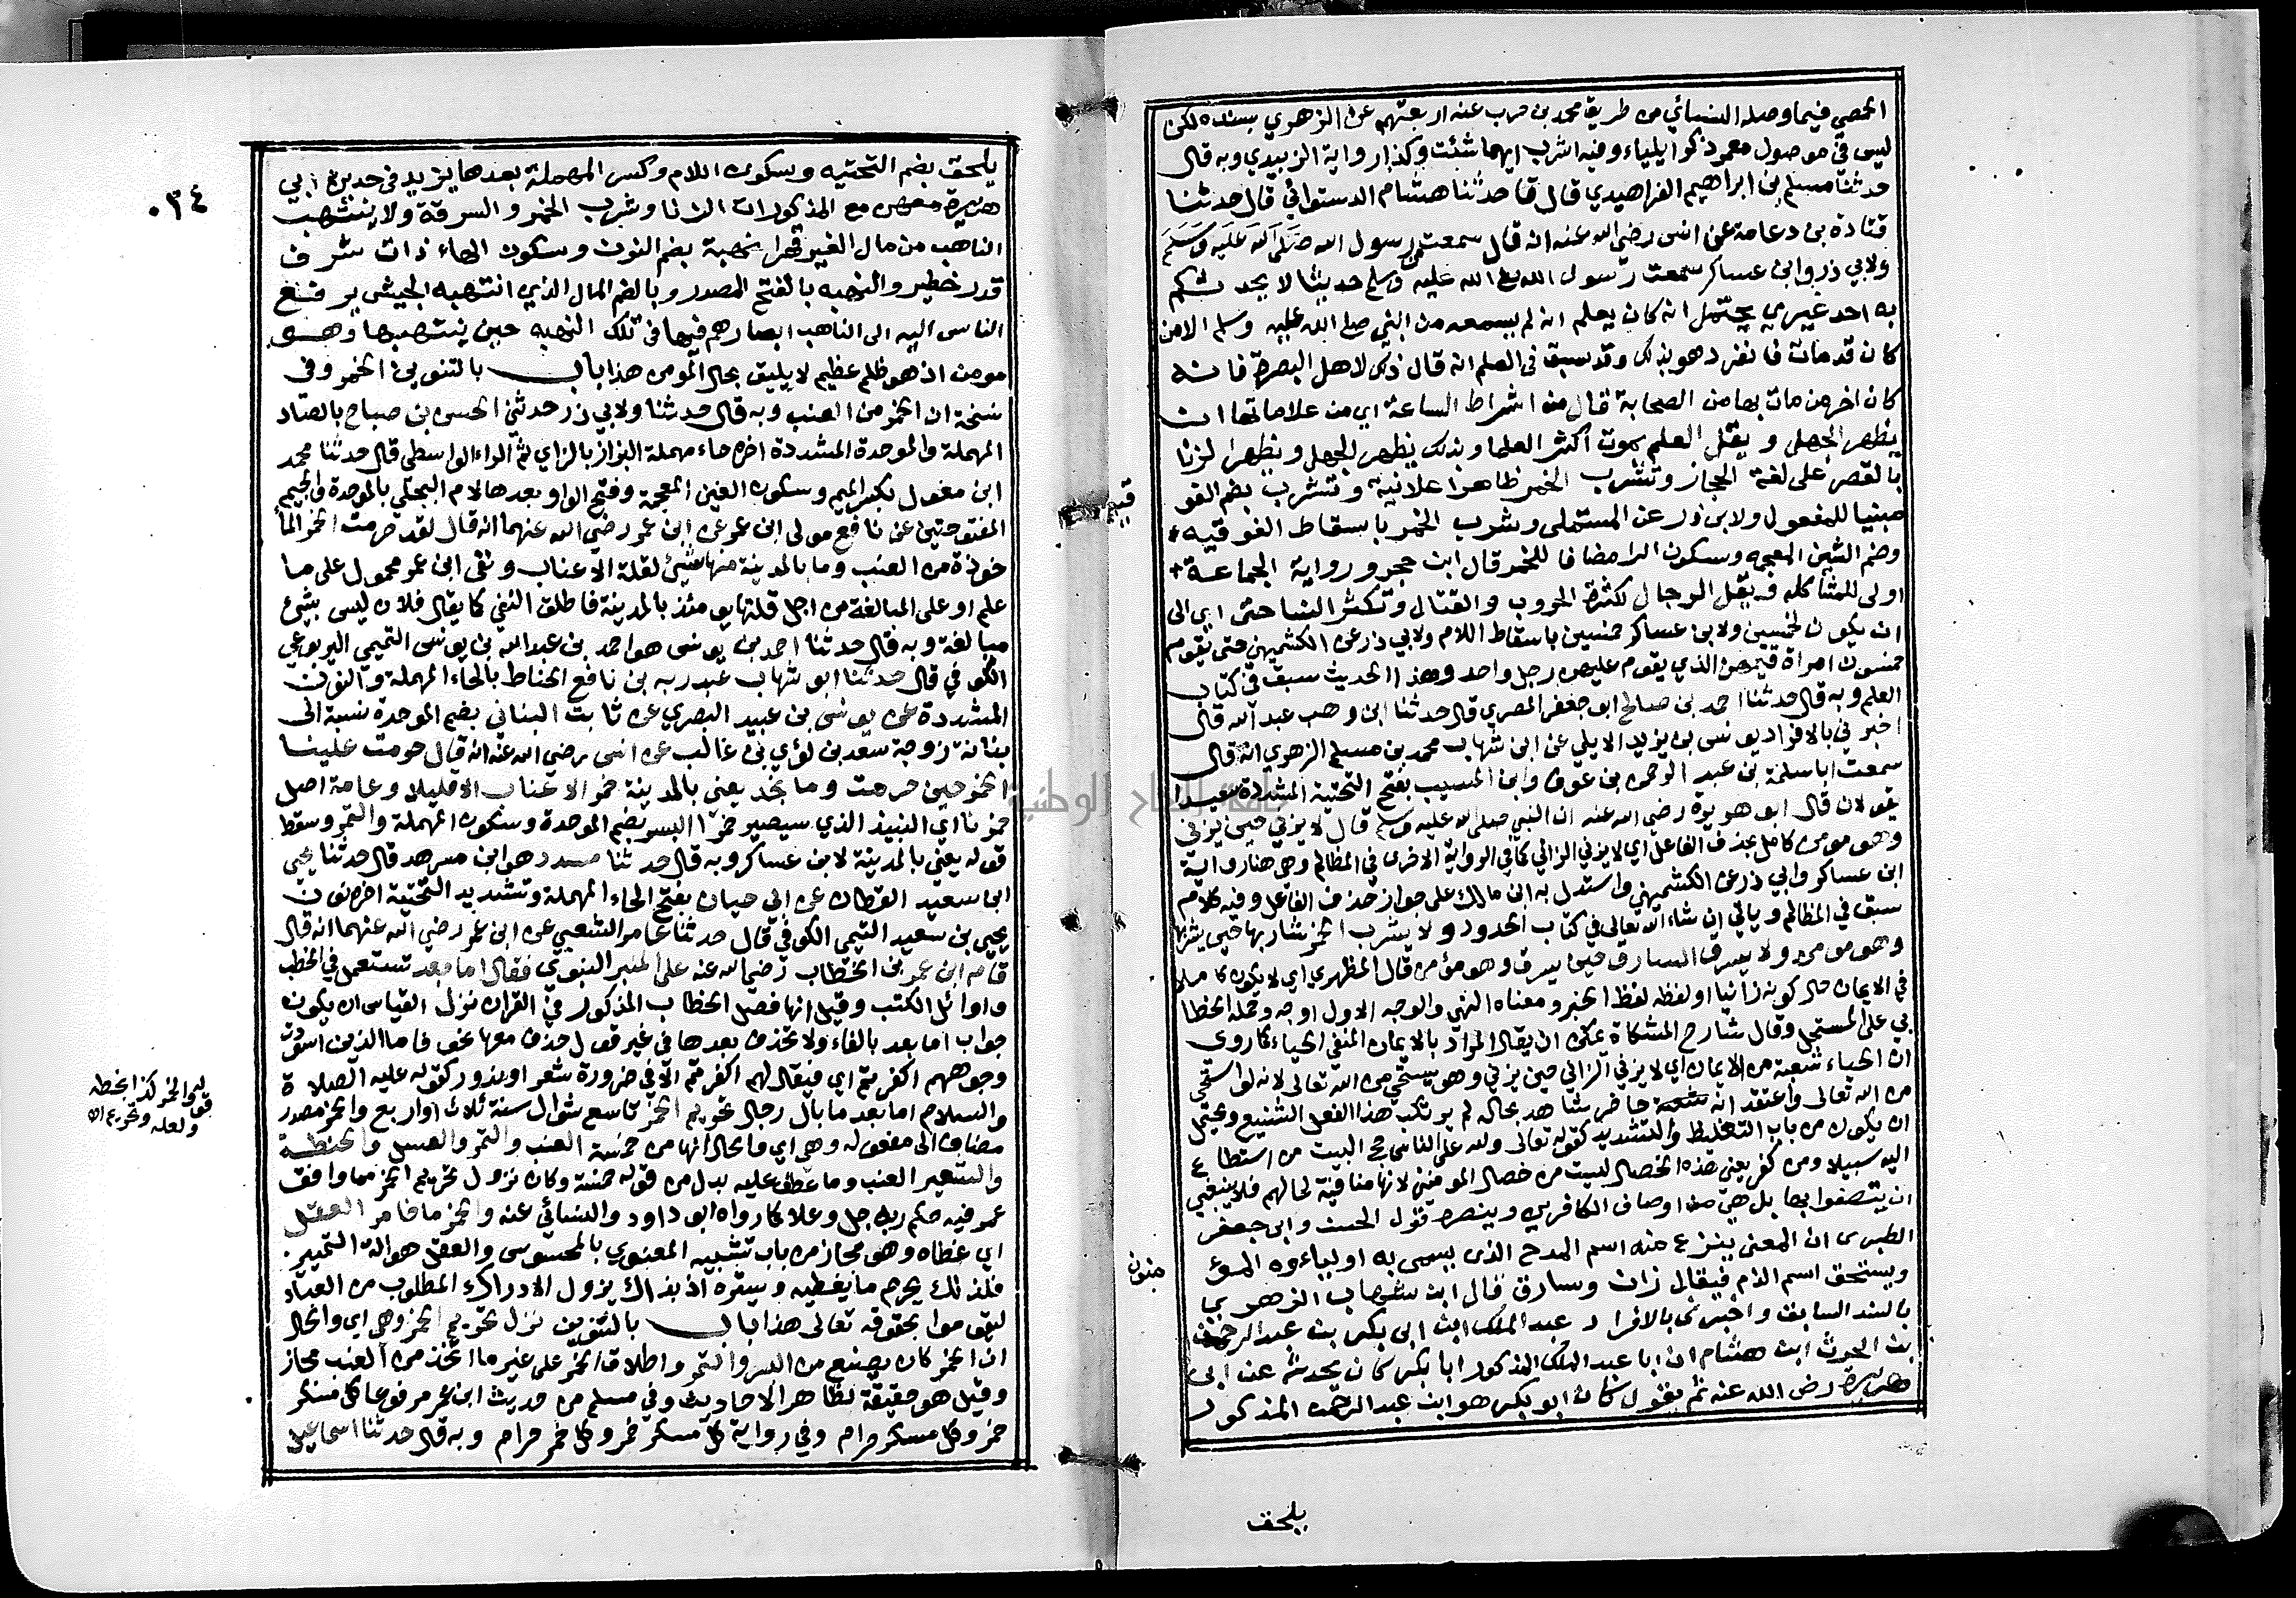 الحمصي فيما وصله النسائي من طريق محمد بن حرب عنه اربعتهم عن الزهري بسنده لكن
ليس في موصول معمر ذكر ايلياء وفيه اشرب ايهما شئت وكذا رواية الزبيدي وبه قال
حدثنا مسلم بن ابراهيم الفراهيدي قال قا حدثنا هشام الدستوائي قال حدثنا
قتادة بن دعامة عن انس رضي الله عنه انه قال سمعت من رسول الله صلى الله عليه وسلم
ولابي ذر وابن عساكر سمعت رسول الله صلى الله عليه وسلم حديثا لا يحدثكم
به احد غيري يحتمل انه كان يعلم انه لم يسمعه من النبي صلى الله عليه وسلم الا من
كان قد مات فانفرد هو بذلك وقد سبق في العلم انه قال ذلك لاهل البصرة فانه
كان اخر من مات بها من الصحابة قال من اشراط الساعة اي من علاماتها ان
يظهر الجهل ويقل العلم بموت اكثر العلما وبذلك يظهر الجهل ويظهر الزنا
بالقصر على لغة الحجاز وتشرب الخمر ظاهرا علانية وتشرب بضم الفو
قيه
مبنيا للمفعول ولابي ذر عن المستملي وشرب الخمر باسقاط الفوقيه
وضم الشين المعجمه وسكون الرا مضافا للخمر قال ابن حجر ورواية الجماعة
اولى للمشاكله ويقل الرجال لكثرة الحروب والقتال وتكثر النسا حتى اي الى
ان يكون لخمسين ولابن عساكر خمسين باسقاط اللام ولابي ذر عن الكشميهني حتى يقوم
خمسون امراة قيمهن الذي يقوم عليهن رجل واحد وهذا الحديث سبق في كتاب
العلم وبه قال حدثنا احمد بن صالح ابو جعفر المصري قال حدثنا ابن وهب عبد الله قال
اخبرني بالافراد يونس بن يزيد الايلي عن ابن شهاب محمد بن مسلم الزهري انه قال
سمعت ابا سلمة بن عبد الرحمن بن عوف وابن المسيب بفتح التحتية المشددة سعيدا
يقولان قال ابو هريرة رضي الله عنه ان النبي صلى الله عليه وسلم قال لا يزني حين يزني
وهو مومن كامل بحذف الفاعل اي لا يزني الزاني كما في الرواية الاخرى في المظالم وهي هنا رواية
ابن عساكر وابي ذر عن الكشميهني واستدل به ابن مالك على جواز حذف الفاعل وفيه كلام
سبق في المظالم وياتي ان شاء الله تعالى في كتاب الحدود ولا يشرب الخمر شاربها حين يشربها
وهو مومن ولا يسرق السارق حين يسرق وهو مؤمن قال المظهري اي لا يكون كاملا
في الايمان حال كونه زانيا او لفظه لفظ الخبر ومعناه النهي والوجه الاول اوجه وحمله الخطا
بي على المستحل وقال شارح المشكاة يمكن ان يقال المراد بالايمان المنفي الحياء كما روى
ان الحياء شعبة من الايمان اي لا يزني الزاني حين يزني وهو يستحي من الله تعالى لانه لو استحى
من الله تعالى واعتقد انه حاضر شاهد بحاله لم يرتكب هذا الفعل الشنيع ويحتمل
ان يكون من باب التغليظ والتشديد كقوله تعالى ولله على الناس حج البيت من استطاع
اليه سبيلا ومن كفر يعني هذه الخصال ليست من خصال المومنين لانها منافية لحالهم فلا ينبغي
ان يتصفوا بها بل هي من اوصاف الكافرين وينصره قول الحسن وابي جعفر
الطبرى ان المعنى ينزع منه اسم المدح الذى يسمى به اولياءوه المو
منون
ويستحق اسم الذم فيقال زان وسارق قال ابن شهاب الزهري
بالسند السابق واخبرنى بالافراد عبد الملك ابن ابى بكر بن عبد الرحمن
بن الحرث ابن هشام ان ابا عبد الملك المذكور ابا بكر كان يحدثه عن ابى
هريرة رضى الله عنه ثم يقول كان ابو بكر هو ابن عبد الرحمن المذكور
يلحق
٠٣٤
يلحق بضم التحتيه وسكون اللام وكسر المهملة بعدها يزيد في حديث ابي
هريرة معهن مع المذكورات الزنا وشرب الخمر والسرقة ولا ينتهب
الناهب من مال الغير قهرا نهبة بضم النون وسكون الهاء ذات شرف
قدر خطير والنهبه بالفتح المصدر وبالضم المال الذي انتهبه الجيش يرفع
الناس اليه الى الناهب ابصارهم فيها في تلك النهبه حين ينتهبها وهو
مومن اذ هو ظلم عظيم لا يليق بحال المومن هذا باب بالتنوين الخمر وفي
نسخة ان الخمر من العنب وبه قال حدثنا ولابي ذر حدثني الحسن بن صباح بالصاد
المهملة والموحدة المشددة اخره حاء مهملة البزاز بالزاي ثم الراء الواسطي قال حدثنا محمد
ابن مغول بكسر الميم وسكون الغين المعجمة وفتح الواو بعدها لام البجلي بالموحدة والجيم
المفتوحتين عن نافع مولى ابن عمر عن ابن عمر رضي الله عنهما انه قال لقد حرمت الخمر الما
خوذة من العنب وما بالمدينة منها شيئ لقلة الاعناب ونفى ابن عمر محمول على ما
علم او على المبالغة من اجل قلتها يومئذ بالمدينة فاطلق النفي كما يقال فلان ليس بشيئ
مبالغة وبه قال حدثنا احمد بن يونس هو احمد بن عبد الله بن يونس التميمي اليربوعي
الكوفي قال حدثنا ابو شهاب عبد ربه بن نافع الحناط بالحاء المهملة والنون
المشددة عن يونس بن عبيد البصري عن ثابت البناني بضم الموحدة نسبة الى
بنانة زوجة سعد بن لؤي بن غالب عن انس رضي الله عنه انه قال حرمت علينا
الخمر حين حرمت وما نجد يعني بالمدينة خمر الاعناب الا قليلا وعامة اصل
خمرنا اي النبيذ الذي سيصير خمرا البسر بضم الموحدة وسكون المهملة والتمر وسقط
قوله يعني بالمدينة لابن عساكر وبه قال حدثنا مسدد هو ابن مسرهد قال حدثنا يحيى
ابن سعيد القطان عن ابي حيان بفتح الحاء المهملة وتشديد التحتية اخره نون
يحيى بن سعيد التيمي الكوفي قال حدثنا عامر الشعبي عن ابن عمر رضي الله عنهما انه قال
قام ابن عمر بن الخطاب رضي الله عنه على المنبر النبوي فقال اما بعد تستعمل في الخطب
واوائل الكتب وقيل انها فصل الخطاب المذكور في القران نزل القياس ان يكون
جواب اما بعد بالفاء ولا تحذف بعدها في غير قول حذف معها نحو فاما الذين اسودت
وجوههم اكفرتم اي فيقال لهم اكفرتم الا في ضرورة شعر او ندور كقوله عليه الصلاة
والسلام اما بعد ما بال رجال تحريم الخمر تاسع شوال سنة ثلاث او اربع والخمر مصدر
مضاف الى مفعوله وهي اي والحال انها من خمسة العنب والتمر والعسل والحنطة
والشعير العنب وما عطف عليه بدل من قوله خمسة وكان نزول تحريم الخمر مما وافق
عمر فيه حكم ربه جل وعلا كما رواه ابو داود والنسائي عنه والخمر ما خامر العقل
اي غطاه وهو مجاز من باب تشبيه المعنوي بالمحسوس والعقل هو الة التمييز
فلذلك يحرم ما يغطيه ويستره اذ بذلك يزول الادراك المطلوب من العباد
ليقوموا بحقوقه تعالى هذا باب بالتنوين نزل تحريم الخمر وهي اي والحال
ان الخمر كان يصنع من البسر والتمر واطلاق الخمر على غير ما اتخذ من العنب مجاز
وقيل هو حقيقة لظاهر الاحاديث وفي مسلم من حديث ابن عمر مرفوعا كل مسكر
خمر وكل مسكر حرام وفي رواية كل مسكر خمر وكل خمر حرام وبه قال حدثنا اسماعيل
قوله والخمر كذا بخطه
ولعله وتحريم اه